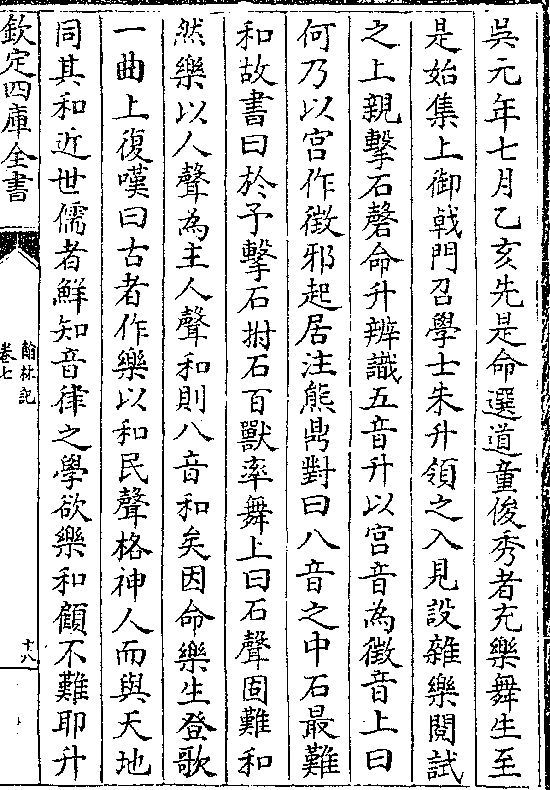 吳元年七月乙亥先是命選道童俊秀者充樂舞生至
是始集上御戟門召學士朱升領之入見設雜樂閱試
之上親擊石磬命升辨識五音升以宮音為徵音上曰
何乃以宮作徵邪起居注熊鼎對曰八音之中石最難
和故書曰於予擊石拊石百獸率舞上曰石聲固難和
然樂以人聲為主人聲和則八音和矣因命樂生登歌
一曲上復嘆曰古者作樂以和民聲格神人而與天地
同其和近世儒者鮮知音律之學欲樂和顧不難耶升
欽定四庫全書
翰林記
卷七
十八